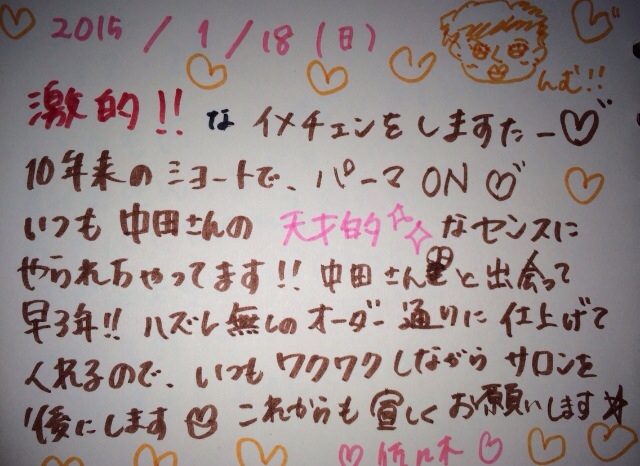 2015/1/18(日)
んむ!!
激的!!なイメチェンをしますたー♡
10年来のショートで、パーマON♡
いつも中田さんの天才的なセンスに
やられちゃってます!!中田さんと出会って
早3年!!ハズレ無しのオーダー通りに仕上げて
くれるので、いつもワクワクしながらサロンを
後にします♡これからも宜しくお願いします☆
♡佐々木♡